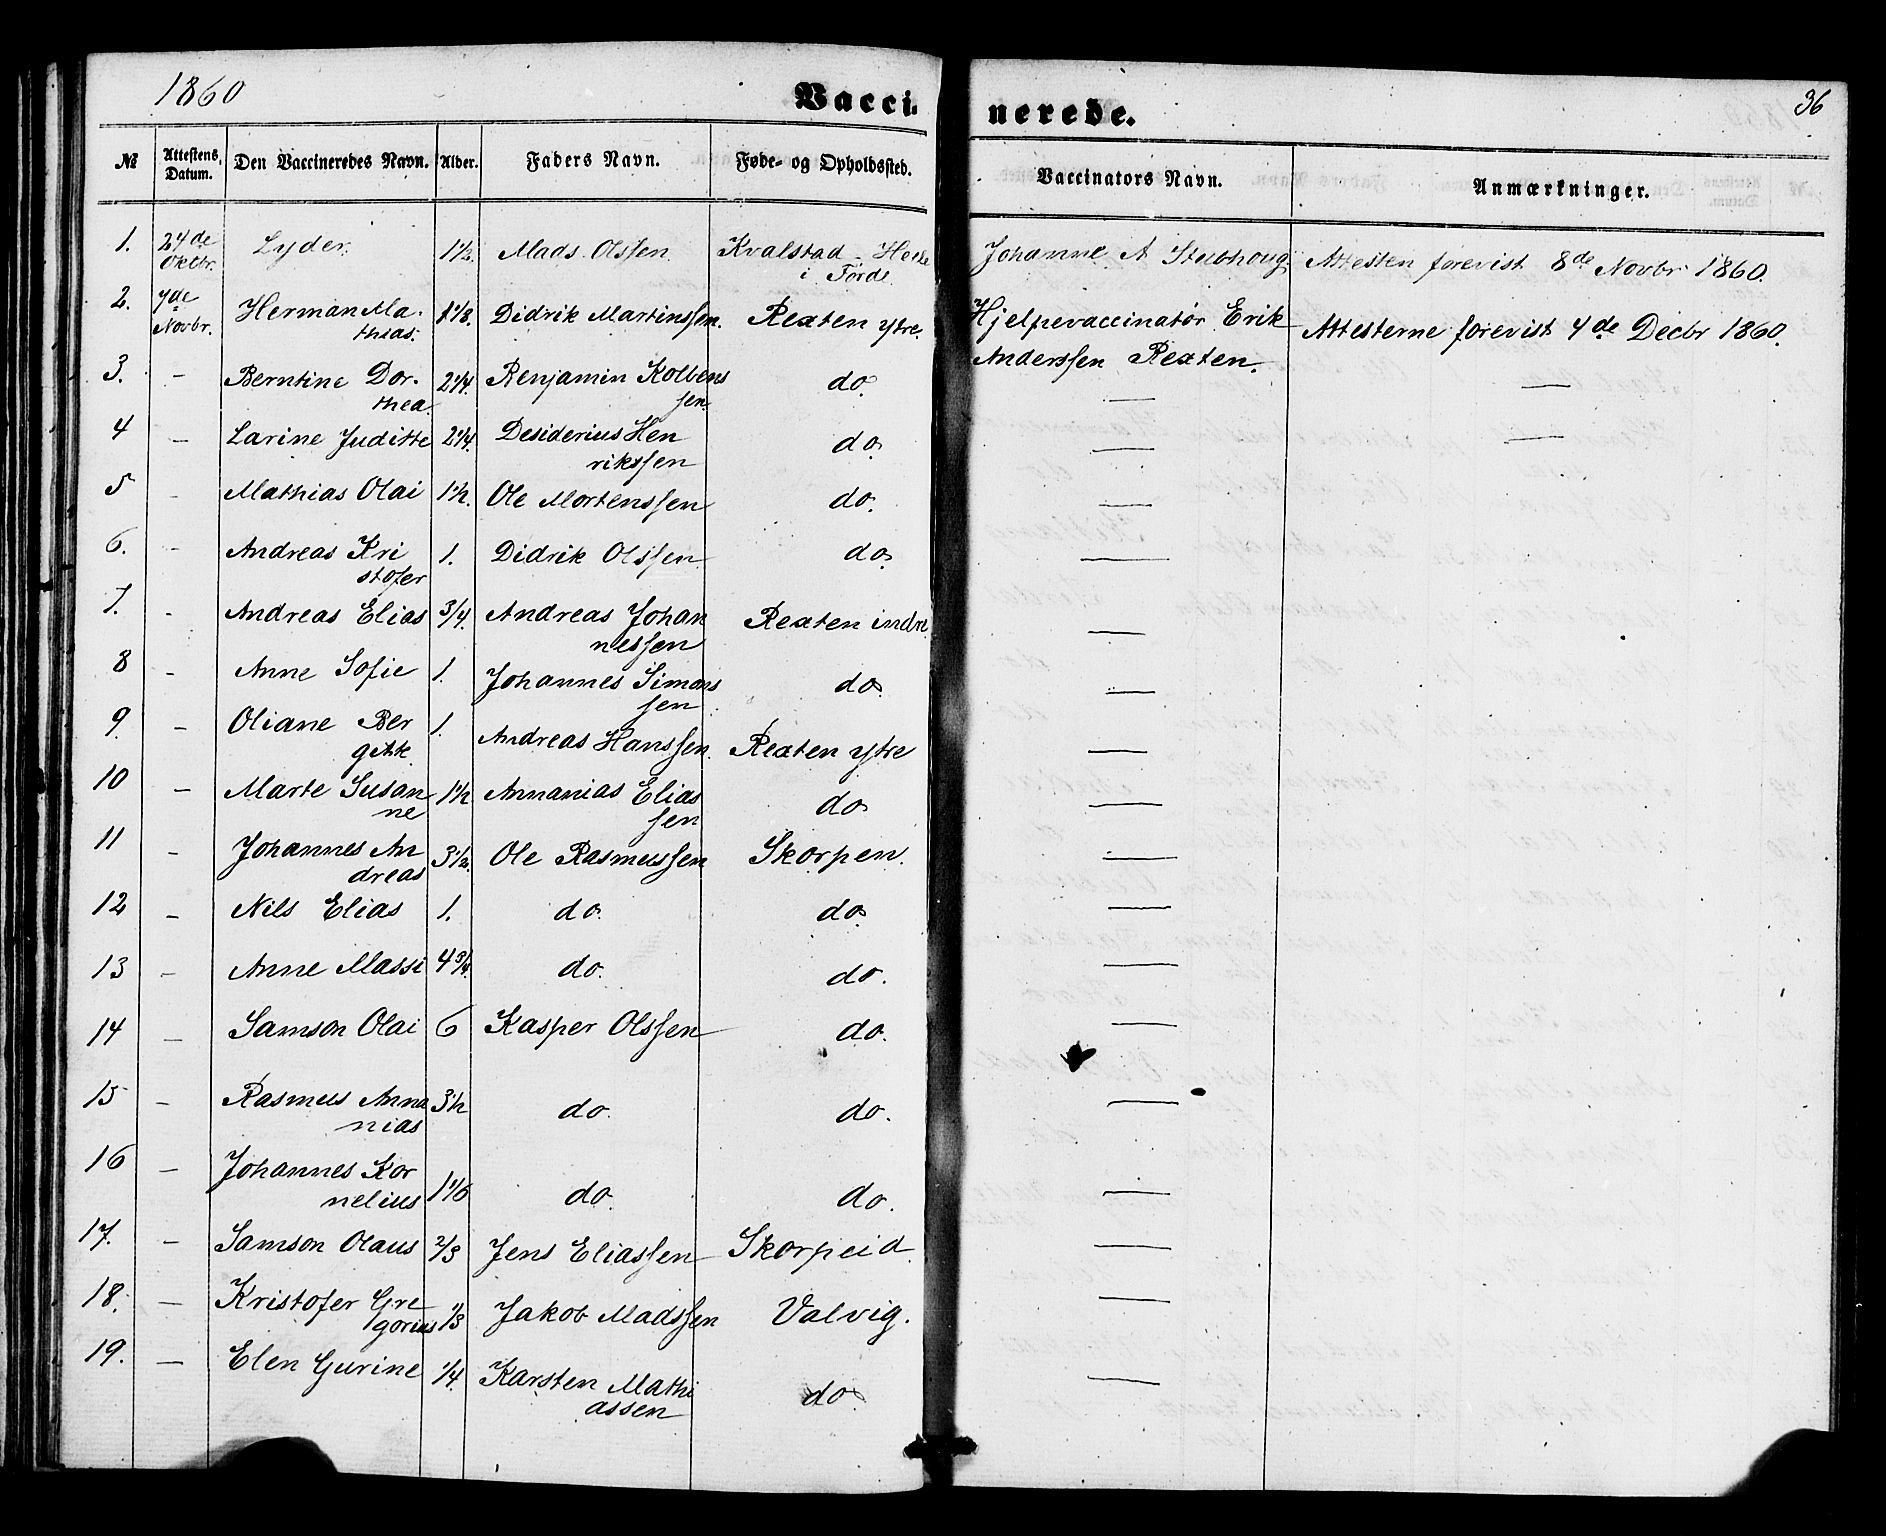 1860 Vaccinerede. 36
№ Attestens Datum. Den Vaccineredes Navn. Alder. Faders Navn. Føde- og Opholdssted. Vaccinators Navn. Anmærkninger.
1. 24de Oktbr. Lyder. 1 1/2 Mads Olssen Kvalstad i Førde Johanne A Stubhoug Attesten forevist 8de Novbr 1860.
2. 7de Novbr. Herman Mathias. 1 1/3. Didrik Martinssen. Rexten ytre. Hjelpevaccinatør Erik Anderssen Rexten. Attesterne forevist 4de Decbr 1860.
3. - Berntine Dorthea. 2 1/4. Benjamin Kolbenssen. do. — —
4 - Larine Juditte 2 1/4. Desiderius Henrikssen do. — —
5 - Mathias Olai 1 1/2. Ole Mortenssen do. —
6. - Andreas Kristofer 1. Didrik Olssen do. —
7. - Andreas Elias 3/4. Andreas Johannessen Rexten indre —
8 - Anne Sofie 1. Johannes Simonssen do. —
9. - Oliane Bergitte. 1. Andreas Hanssen. Rexten ytre —
10 - Marte Susanne 1 1/2 Annanias Eliassen do. —
11 - Johannes Andreas 3 1/2. Ole Rasmussen Skorpen. —
12 - Nils Elias 1. do. do. —
13 - Anne Massi 4 3/4. do. do. —
14 - Samson Olai 6 Kasper Olssen do. —
15 - Rasmus Annanias 3 1/2 do. do. —
16 - Johannes Kornelius 1 1/6 do. do. —
17. - Samson Olaus 2/3 Jens Eliassen Skorpeid. —
18. - Kristofer Gregorius 1/3 Jakob Madssen Valvig. —
19. - Elen Gurine 1/4. Karsten Mathiassen do. —